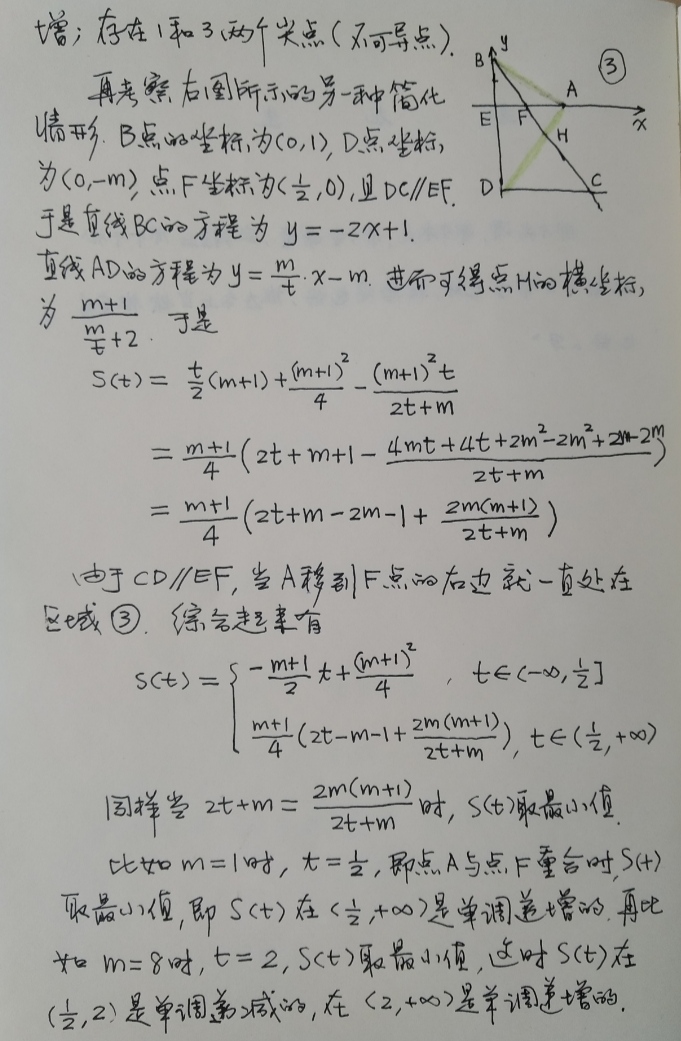 增；存在1和3两个尖点(不可导点).
再考察右图所示的另一种简化
情形. B点的坐标为(0,1), D点坐标
为(0,-m), 点F坐标为(1/2,0), 且DC∥EF.
于是直线BC的方程为 y=-2x+1.
直线AD的方程为y=m/t·x-m. 进而可得点H的横坐标
为 (m+1)/(m/t+2). 于是
S(t)= t/2(m+1)+(m+1)²/4-(m+1)²t/(2t+m)
= (m+1)/4(2t+m+1-(4mt+4t+2m²-2m²+2m-2m)/(2t+m))
= (m+1)/4(2t+m-2m-1+2m(m+1)/(2t+m))
由于CD∥EF, 当A移到F点的右边就一直处在
区域③. 综合起来有
S(t)={ -(m+1)/2 t+(m+1)²/4, t∈(-∞,1/2]
(m+1)/4(2t-m-1+2m(m+1)/(2t+m)), t∈(1/2,+∞)
同样当 2t+m=2m(m+1)/(2t+m)时, S(t)取最小值.
比如m=1时, t=1/2, 即点A与点F重合时, S(t)
取最小值, 即S(t)在(1/2,+∞)是单调递增的. 再比
如m=8时, t=2, S(t)取最小值, 这时S(t)在
(1/2,2)是单调递减的, 在(2,+∞)是单调递增的.
y
B
③
A
E
F
x
H
D
C